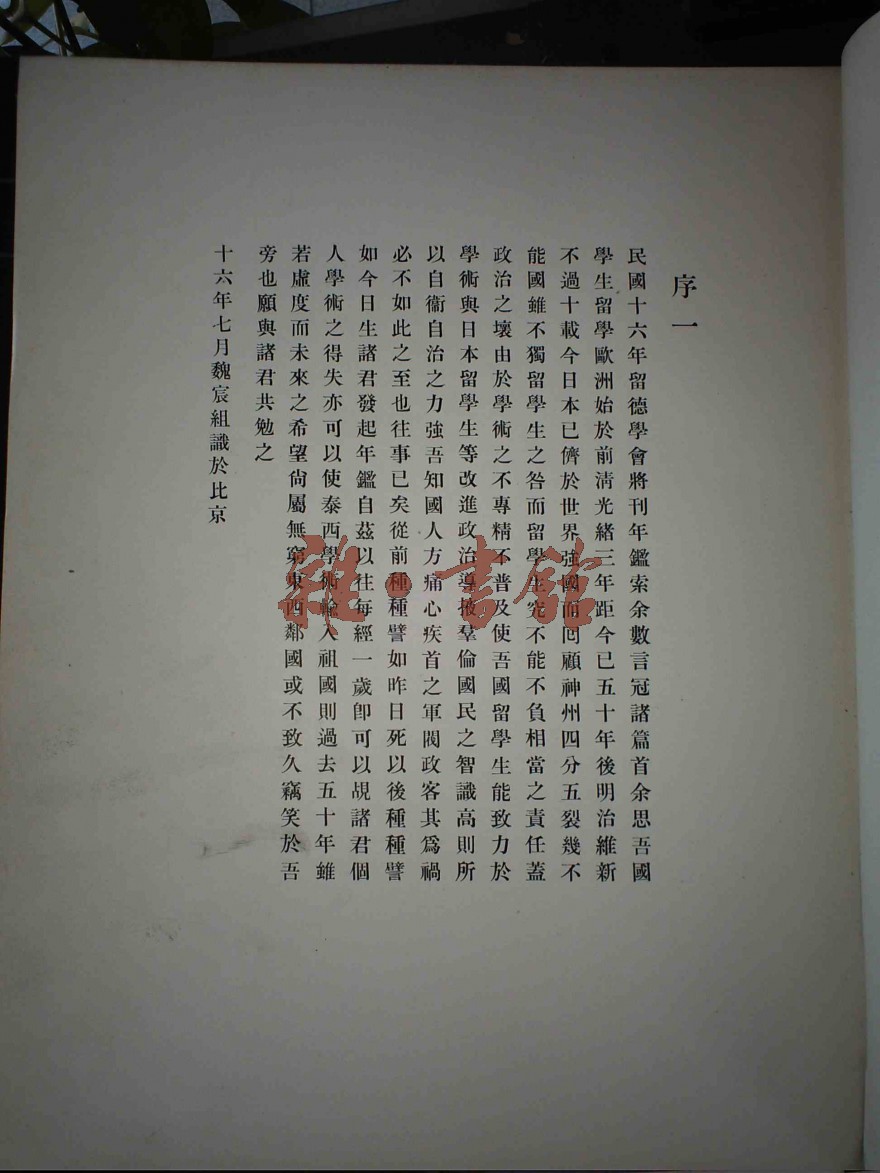 序一
民國十六年留德學會將刊年鑑索余數言冠諸篇首余思吾國
學生留學歐洲始於前淸光緒三年距今已五十年後明治維新
不過十載今日本已儕於世界強國而回顧神州四分五裂幾不
能國雖不獨留學生之咎而留學生究不能不負相當之責任蓋
政治之壞由於學術之不專精不普及使吾國留學生能致力於
學術與日本留學生等改進政治導掖羣倫國民之智識高則所
以自衞自治之力強吾知國人方痛心疾首之軍閥政客其爲禍
必不如此之至也往事已矣從前種種譬如昨日死以後種種譬
如今日生諸君發起年鑑自茲以往每經一歲卽可以覘諸君個
人學術之得失亦可以使泰西學術輸入祖國則過去五十年雖
若虛度而未來之希望尙屬無窮東西鄰國或不致久竊笑於吾
旁也願與諸君共勉之
十六年七月魏宸組識於比京
雜·書館